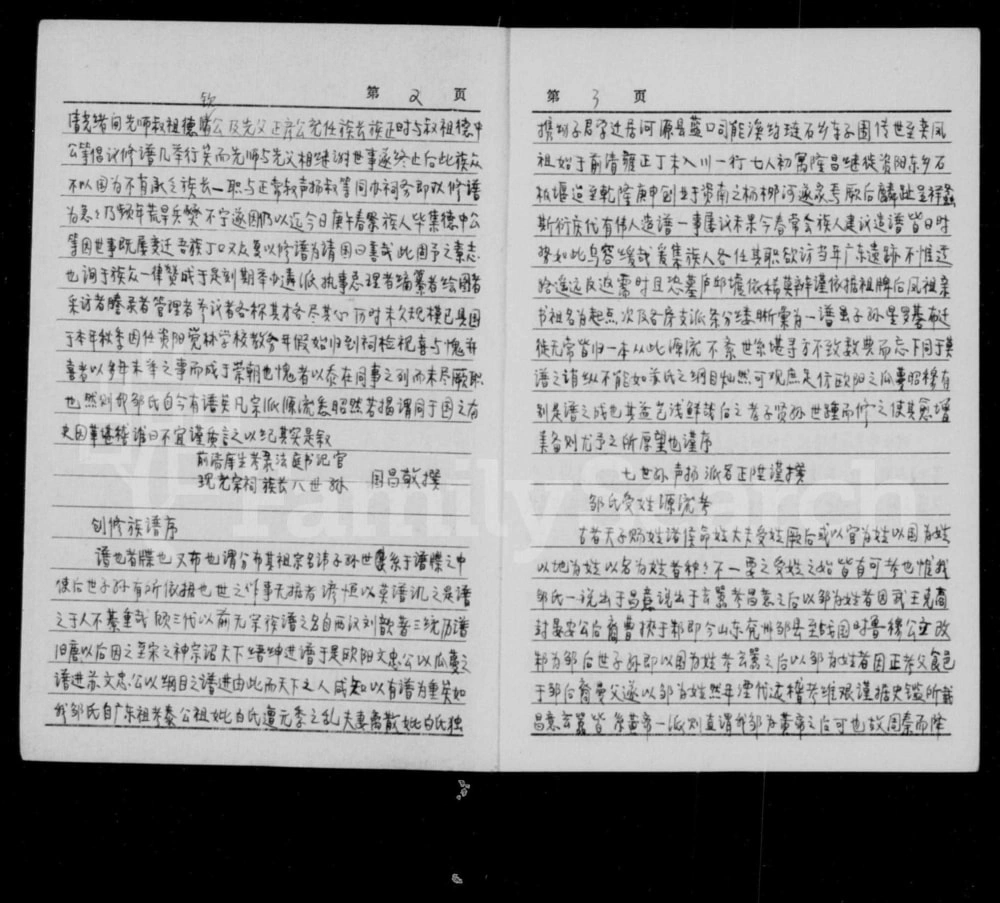 第 2 页
钦
清光绪间先师叔祖德胜公及先父正彦公充任族长族正时与叔祖德中
公等倡议修谱几举行矣而先师与先父相继谢世事遂终止后此族众
不以因为不有承之族长一职与正常叔声扬叔等同办祠务即以修谱
为急乃频年荒旱兵燹不宁遂因仍以迄今日庚午春祭族人毕集德中公
等因世事既屡变迁吾族丁口又众复以修谱为请因曰善哉此固予之素志
也询于族众一律赞成于是刻期举办遴派执事总理者编纂者绘图者
采访者誊录者管理者参议者各称其才各尽其心历时未久规模已具因
于本年秋季因任资阳觉林学校教务年假始归到祠检视喜与愧并
喜者以多年未举之事而成于崇朝也愧者以忝在同事之列而未尽厥职
也然则我邹氏自今有谱矣凡宗派源流悉昭然若揭谓同于国之有
史因革堪稽谁曰不宜谨质言之以纪其实是叙
前清廪生考录法庭书记官
现充宗祠族长八世孙 国昌敬撰
创修族谱序
谱也者牒也又布也谓分布其祖宗名讳子孙世系于谱牒之中
使后世子孙有所依据也世之作事无据者谚恒以莫谱讥之是谱
之于人不綦重哉顾三代以前无宗族谱之名自西汉刘歆著三统历谱
旧唐以后因之至宋之神宗诏天下缙绅进谱于是欧阳文忠公以瓜蔓之
谱进苏文忠公以纲目之谱进由此而天下之人咸知以有谱为重矣如
我邹氏自广东祖考泰公祖妣白氏遭元季之乱夫妻离散妣白氏独
第 3 页
携幼子君宇迁居河源县蓝口司能溪约琏石乡车子围传世至奕凤
祖始于前清雍正丁未入川一行七人初寓隆昌继徙资阳东乡石
板堰迨至乾隆庚申创业于资南之杨柳河遂家焉厥后麟趾呈祥螽
斯衍庆代有伟人造谱一事屡议未果今春常会族人建议造谱皆曰时
势如此乌容缓哉爰集族人各任其职欲访当年广东遗迹不惟道
路遥远及返需时且恐墓庐邱墟依稀莫辨谨依据祖牌后凤祖亲
书祖名为起点次及各房支派条分缕晰汇为一谱异子孙星罗棋布迁
徙无常皆归一本从此源流不紊世系堪寻方不致数典而忘下同于莫
谱之诮纵不能如苏氏之纲目灿然可观庶是仿欧阳之瓜蔓昭稀有
别是谱之成也其益岂浅鲜哉后之孝子贤孙世踵而修之使其愈增
美备则尤予之所厚望也谨序
七世孙声扬派名正陞谨撰
邹氏受姓源流考
古者天子赐姓诸侯命姓大夫受姓厥后或以官为姓以国为姓
以地为姓以名为姓者种々不一要之受姓之始皆有可考也惟我
邹氏一说出于昌意说出于玄嚣考昌意之后以邹为姓者因武王克商
封晏安公后裔曹挟于邾即今山东兖州邹县至战国时鲁穆公立改
邾为邹后世子孙即以国为姓考玄嚣之后以邹为姓者因正考父食邑
于邹后裔曼父遂以邹为姓然年湮代远稽考维艰谨据史鉴所载
昌意玄嚣皆系黄帝一派则直谓我邹为黄帝之后可也故周秦而降